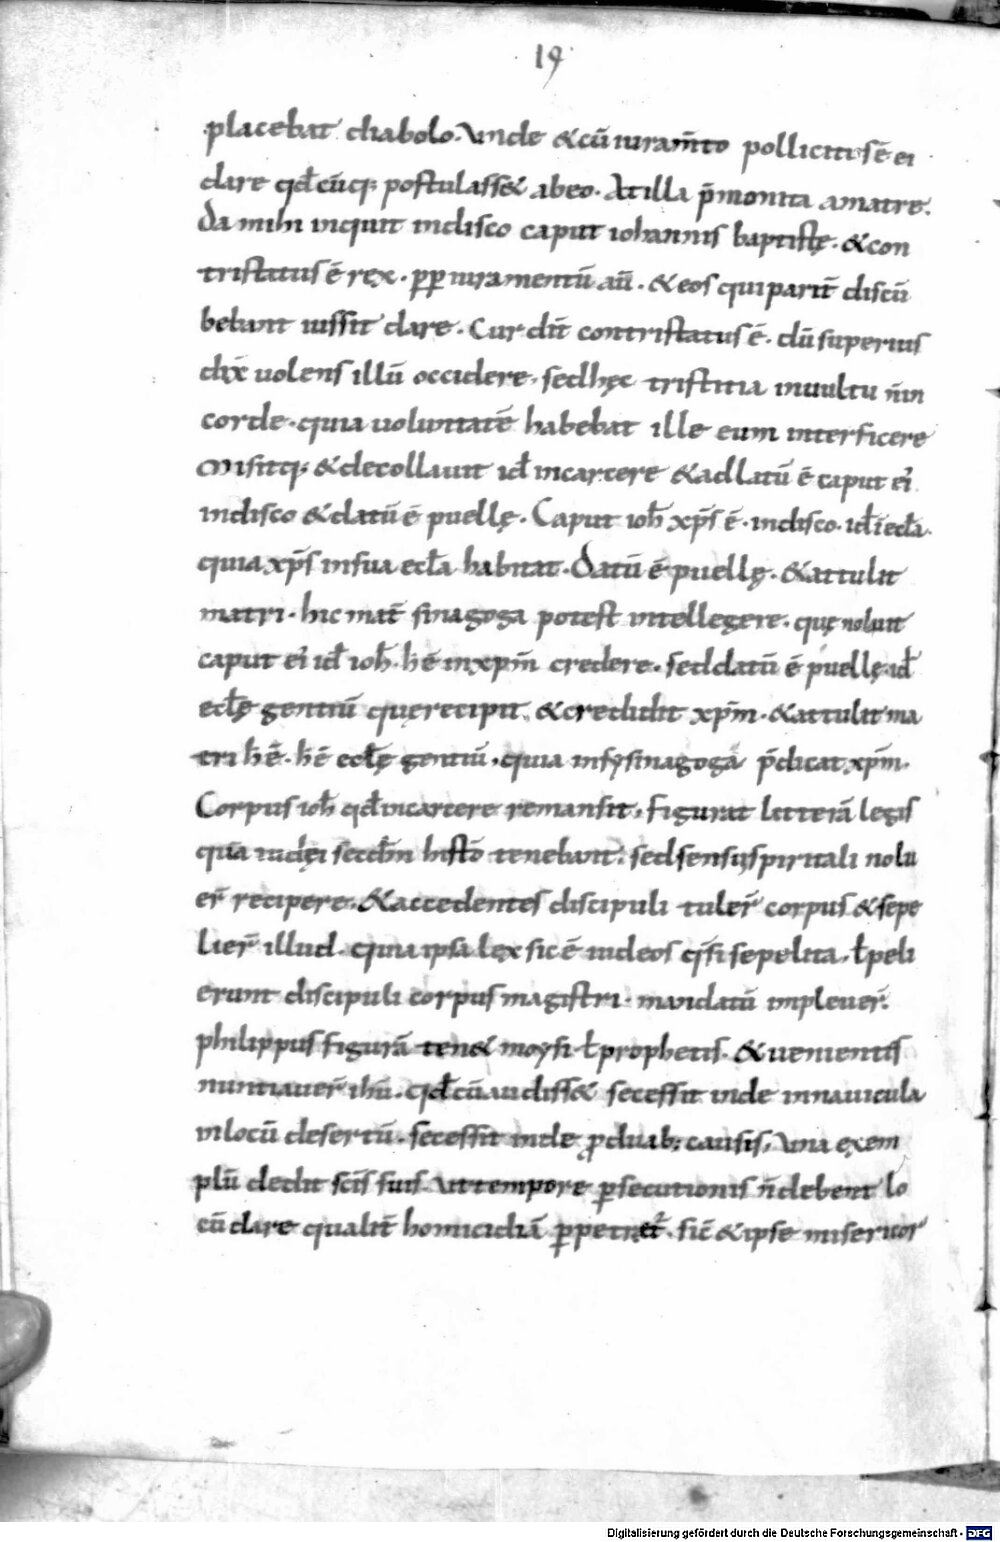 19
placebat diabolo. Unde & cū iuram̄to pollicitus ē ei
dare qđcūq; postulass& abeo. At illa p̄monita amatre.
Da mihi inquit indisco caput iohannis baptistę. & con
tristatus ē rex. pp iuramentū aū. & eos qui parit̄ discū
bebant iussit dare. Cur dn̄t contristatus ē. dū superius
dix̄ uolens illū occidere, sed hęc tristitia inuultu n̄ in
corde. quia uoluntatē habebat ille eum interficere
Misitq; & decollauit iđ incarcere & adlatū ē caput ei'
indisco & datū ē puellę. Caput ioh̄ xp̄s ē. indisco. iđ ī eccła.
quia xp̄s insua eccła habitat. Datū ē puellę. & attulit
matri. hic mat̄ sinagoga potest intellegere. quę noluit
caput ei' iđ ioh̄. h̄ ē inxpm̄ credere. sed datū ē puellę. iđ
ecłę gentiū que recipit, & credidit xpm̄. & attulit ma
tri h̄ ē. h̄ ē ecłę gentiū, quia insysinagoga p̄dicat xpm̄.
Corpus ioh̄ qđ incarcere remansit, figurat litterā legis
quā iudęi secđm histō tenebant. sed sensū spiritali nolu
er̄ recipere. & accedentes discipuli tuler̄ corpus & sepe
lier̄ illud. quia ipsa lex sic ē iudeos q̄si sepelita, ł peli
erunt discipuli corpus magistri. mandatū impleuer̄.
philippus figurā ten& moysi ł prophetis. & uenientes
nuntiauer̄ ihū. qđ cū audiss& secessit inde innauicula
inlocū desertū. secessit inde ꝓ duab; causis, una exem
plū dedit sc̄is suis ut tempore ꝑsecutionis n̄ debent lo
cū dare qualit̄ homicidiā ꝑpetret̄. sic̄ & ipse misericor
Digitalisierung gefördert durch die Deutsche Forschungsgemeinschaft - DFG